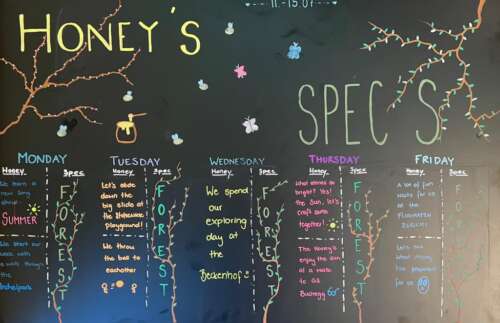 11.-15.07
HONEY'S
SPEC'S
MONDAY
Honey
Spec
We learn a
new song
about
SUMMER
We start our
week with
a walk through
the
FOREST
TUESDAY
Honey
Spec
Let's slide
down the
big slide at
the
playground!
We throw
the ball to
eachother
FOREST
WEDNESDAY
Honey
Spec
We spend
our
exploring
day at
the
Beckenhof
FOREST
THURSDAY
Honey
Spec
What shines so
bright? Yes!
the Sun, let's
craft some
together!
The Honey's
enjoy the sun
at a walk
to GZ
Buchegg
FOREST
FRIDAY
Honey
Spec
A lot of fun
waits for us
at the
FLUGHAFEN
ZÜRICH!
Let's see
what Money
has prepared
for us
FOREST